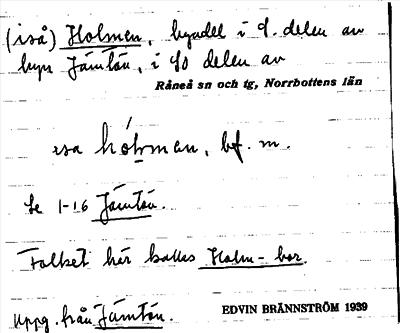 (iså) Holmen, byndel i d. delen av
byn Jämtön, i SO delen av
Råneå sn och tg, Norrbottens län
hólman, bf. m.
Se 1-16 Jämtön.
Folket här kallas Holm-bor.
Uppg. från Jämtön.
EDVIN BRÄNNSTRÖM 1939